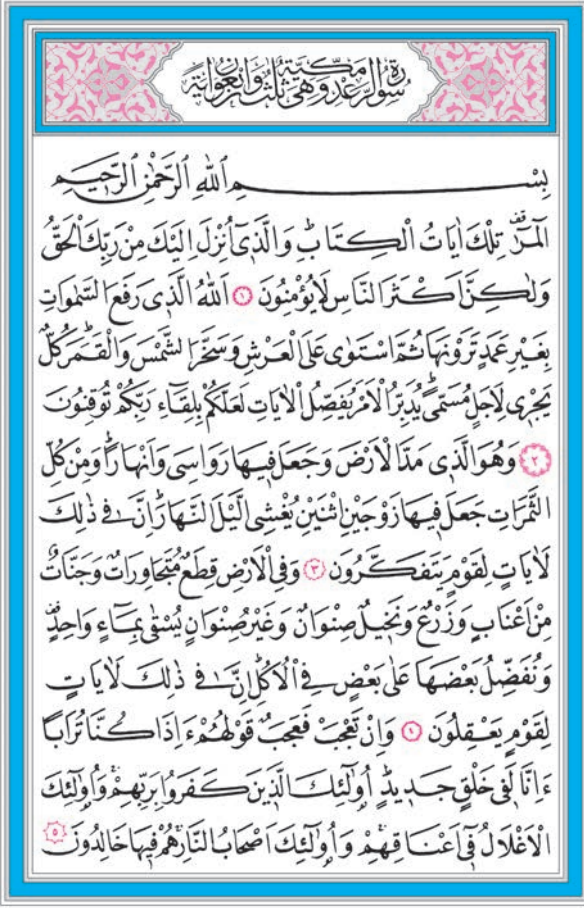 سورة الرعد مكية وهى ثلث واربعون اية
بِسْمِ اللّٰهِ الرَّحْمٰنِ الرَّحٖيمِ
الٓمٓرٰ تِلْكَ اٰيَاتُ الْكِتَابِۜ وَالَّذٖٓى اُنْزِلَ اِلَيْكَ مِنْ رَبِّكَ الْحَقُّ
وَلٰكِنَّ اَكْثَرَ النَّاسِ لَا يُؤْمِنُونَ ﴿١﴾ اَللّٰهُ الَّذٖى رَفَعَ السَّمٰوَاتِ
بِغَيْرِ عَمَدٍ تَرَوْنَهَا ثُمَّ اسْتَوٰى عَلَى الْعَرْشِ وَسَخَّرَ الشَّمْسَ وَالْقَمَرَۜ كُلٌّ
يَجْرٖى لِاَجَلٍ مُسَمًّىۜ يُدَبِّرُ الْاَمْرَ يُفَصِّلُ الْاٰيَاتِ لَعَلَّكُمْ بِلِقَٓاءِ رَبِّكُمْ تُوقِنُونَ
﴿٢﴾ وَهُوَ الَّذٖى مَدَّ الْاَرْضَ وَجَعَلَ فٖيهَا رَوَاسِىَ وَاَنْهَارًاۜ وَمِنْ كُلِّ
الثَّمَرَاتِ جَعَلَ فٖيهَا زَوْجَيْنِ اثْنَيْنِ يُغْشِى الَّيْلَ النَّهَارَۜ اِنَّ فٖى ذٰلِكَ
لَاٰيَاتٍ لِقَوْمٍ يَتَفَكَّرُونَ ﴿٣﴾ وَفِى الْاَرْضِ قِطَعٌ مُتَجَاوِرَاتٌ وَجَنَّاتٌ
مِنْ اَعْنَابٍ وَزَرْعٌ وَنَخٖيلٌ صِنْوَانٌ وَغَيْرُ صِنْوَانٍ يُسْقٰى بِمَٓاءٍ وَاحِدٍ
وَنُفَضِّلُ بَعْضَهَا عَلٰى بَعْضٍ فِى الْاُكُلِۜ اِنَّ فٖى ذٰلِكَ لَاٰيَاتٍ
لِقَوْمٍ يَعْقِلُونَ ﴿٤﴾ وَاِنْ تَعْجَبْ فَعَجَبٌ قَوْلُهُمْ ءَاِذَا كُنَّا تُرَابًا
ءَاِنَّا لَفٖى خَلْقٍ جَدٖيدٍۜ اُو۬لٰٓئِكَ الَّذٖينَ كَفَرُوا بِرَبِّهِمْۚ وَاُو۬لٰٓئِكَ
الْاَغْلَالُ فٖٓى اَعْنَاقِهِمْۚ وَاُو۬لٰٓئِكَ اَصْحَابُ النَّارِۚ هُمْ فٖيهَا خَالِدُونَ ﴿٥﴾